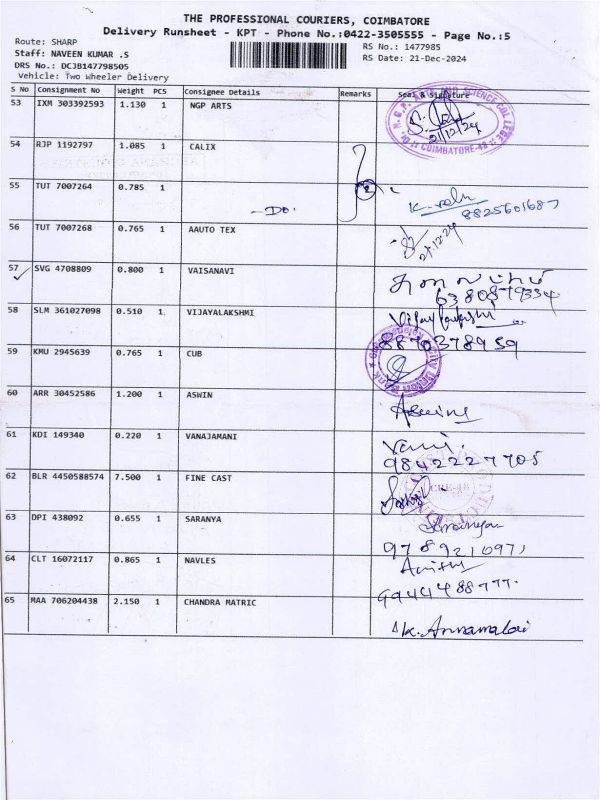 THE PROFESSIONAL COURIERS, COIMBATORE
Delivery Runsheet - KPT - Phone No.:0422-3505555 - Page No.:5
Route: SHARP
RS No.: 1477985
Staff: NAVEEN KUMAR .S
RS Date: 21-Dec-2024
DRS No.: DCJB147798505
Vehicle: Two Wheeler Delivery
S No Consignment No Weight PCS Consignee Details Remarks Seal & Signature
53 IXM 303392593 1.130 1 NGP ARTS
SCIENCE COLLEGE
21/12/24
COIMBATORE-48
54 RJP 1192797 1.085 1 CALIX
55 TUT 7007264 0.785 1 - Do.
8825601687
56 TUT 7007268 0.765 1 AAUTO TEX
21.12.24
57 SVG 4708809 0.800 1 VAISANAVI
6380879334
58 SLM 361027098 0.510 1 VIJAYALAKSHMI
8870378959
59 KMU 2945639 0.765 1 CUB
60 ARR 30452586 1.200 1 ASWIN
61 KDI 149340 0.220 1 VANAJAMANI
Vani.
9842227705
62 BLR 4450588574 7.500 1 FINE CAST
63 DPI 438092 0.655 1 SARANYA
9789210971
64 CLT 16072117 0.865 1 NAVLES
9944488777.
65 MAA 706204438 2.150 1 CHANDRA MATRIC
K. Annamalai